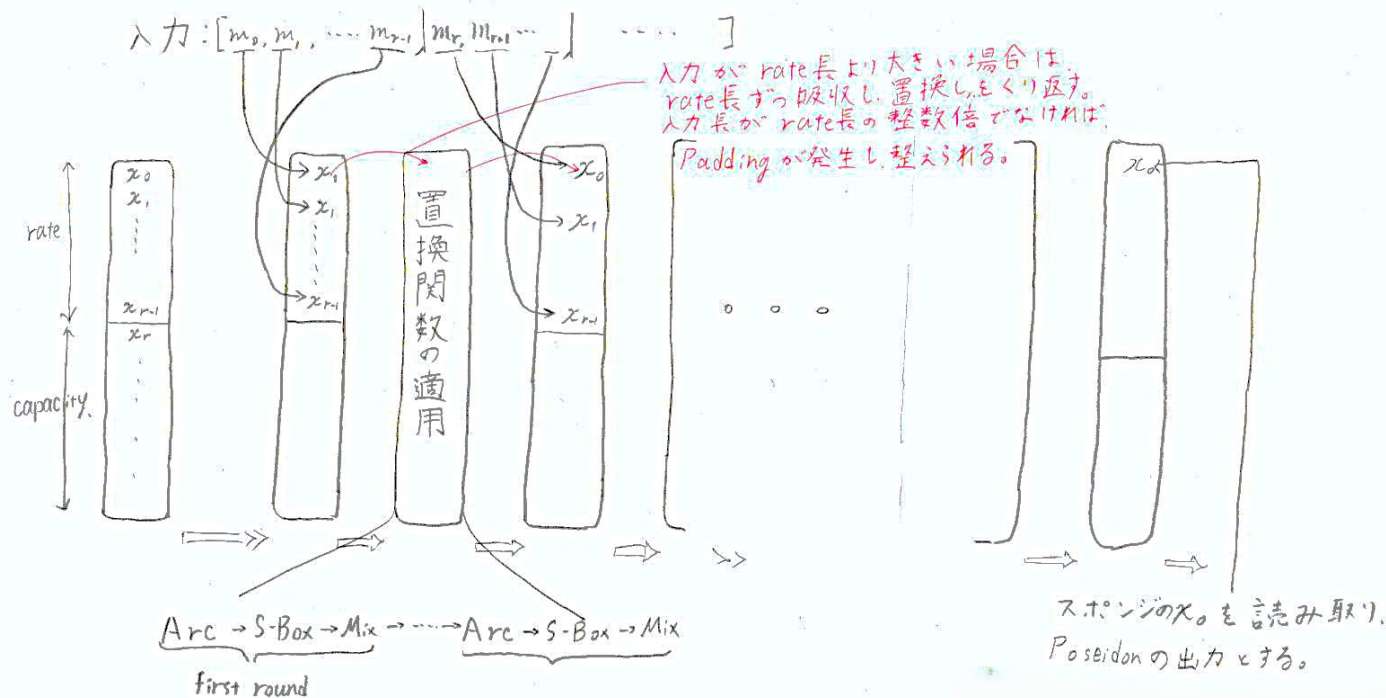 入力:[m₀, m₁, ‥‥ m_{r-1} | m_r, m_{r+1} … | ‥‥ ]
入力が rate長より大きい場合は、
rate長ずつ吸収し、置換し、をくり返す。
入力長が rate長の整数倍でなければ、
Paddingが発生し、整えられる。
rate
capacity.
x₀
x₁
x_{r-1}
x_r
x₁
x_{r-1}
置換関数の適用
x₀
x₁
x_{r-1}
Arc → S-Box → Mix → ‥‥ → Arc → S-Box → Mix
first round
スポンジのx₀を読み取り、
Poseidonの出力とする。